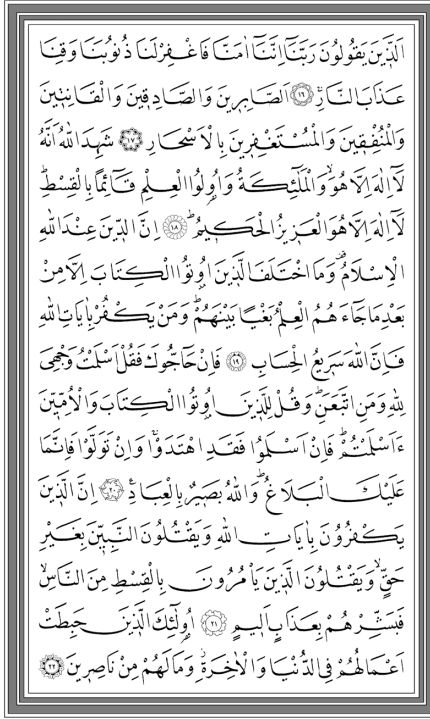 اَلَّذٖينَ يَقُولُونَ رَبَّنَٓا اِنَّنَٓا اٰمَنَّا فَاغْفِرْ لَنَا ذُنُوبَنَا وَقِنَا
عَذَابَ النَّارِۚ ﴿١٦﴾ اَلصَّابِرٖينَ وَالصَّادِقٖينَ وَالْقَانِتٖينَ
وَالْمُنْفِقٖينَ وَالْمُسْتَغْفِرٖينَ بِالْاَسْحَارِ ﴿١٧﴾ شَهِدَ اللّٰهُ اَنَّهُ
لَٓا اِلٰهَ اِلَّا هُوَۙ وَالْمَلٰٓئِكَةُ وَاُو۬لُوا الْعِلْمِ قَٓائِمًا بِالْقِسْطِۜ
لَٓا اِلٰهَ اِلَّا هُوَ الْعَزٖيزُ الْحَكٖيمُۜ ﴿١٨﴾ اِنَّ الدّٖينَ عِنْدَ اللّٰهِ
الْاِسْلَامُ۠ وَمَا اخْتَلَفَ الَّذٖينَ اُو۫تُوا الْكِتَابَ اِلَّا مِنْ
بَعْدِ مَا جَٓاءَهُمُ الْعِلْمُ بَغْيًا بَيْنَهُمْۜ وَمَنْ يَكْفُرْ بِاٰيَاتِ اللّٰهِ
فَاِنَّ اللّٰهَ سَرٖيعُ الْحِسَابِ ﴿١٩﴾ فَاِنْ حَٓاجُّوكَ فَقُلْ اَسْلَمْتُ وَجْهِيَ
لِلّٰهِ وَمَنِ اتَّبَعَنِۜ وَقُلْ لِلَّذٖينَ اُو۫تُوا الْكِتَابَ وَالْاُمِّيّٖنَ
ءَاَسْلَمْتُمْۜ فَاِنْ اَسْلَمُوا فَقَدِ اهْتَدَوْاۚ وَاِنْ تَوَلَّوْا فَاِنَّمَا
عَلَيْكَ الْبَلَاغُۜ وَاللّٰهُ بَصٖيرٌ بِالْعِبَادِ۟ ﴿٢٠﴾ اِنَّ الَّذٖينَ
يَكْفُرُونَ بِاٰيَاتِ اللّٰهِ وَيَقْتُلُونَ النَّبِيّٖنَ بِغَيْرِ
حَقٍّۙ وَيَقْتُلُونَ الَّذٖينَ يَأْمُرُونَ بِالْقِسْطِ مِنَ النَّاسِۙ
فَبَشِّرْهُمْ بِعَذَابٍ اَلٖيمٍ ﴿٢١﴾ اُو۬لٰٓئِكَ الَّذٖينَ حَبِطَتْ
اَعْمَالُهُمْ فِي الدُّنْيَا وَالْاٰخِرَةِۘ وَمَا لَهُمْ مِنْ نَاصِرٖينَ ﴿٢٢﴾